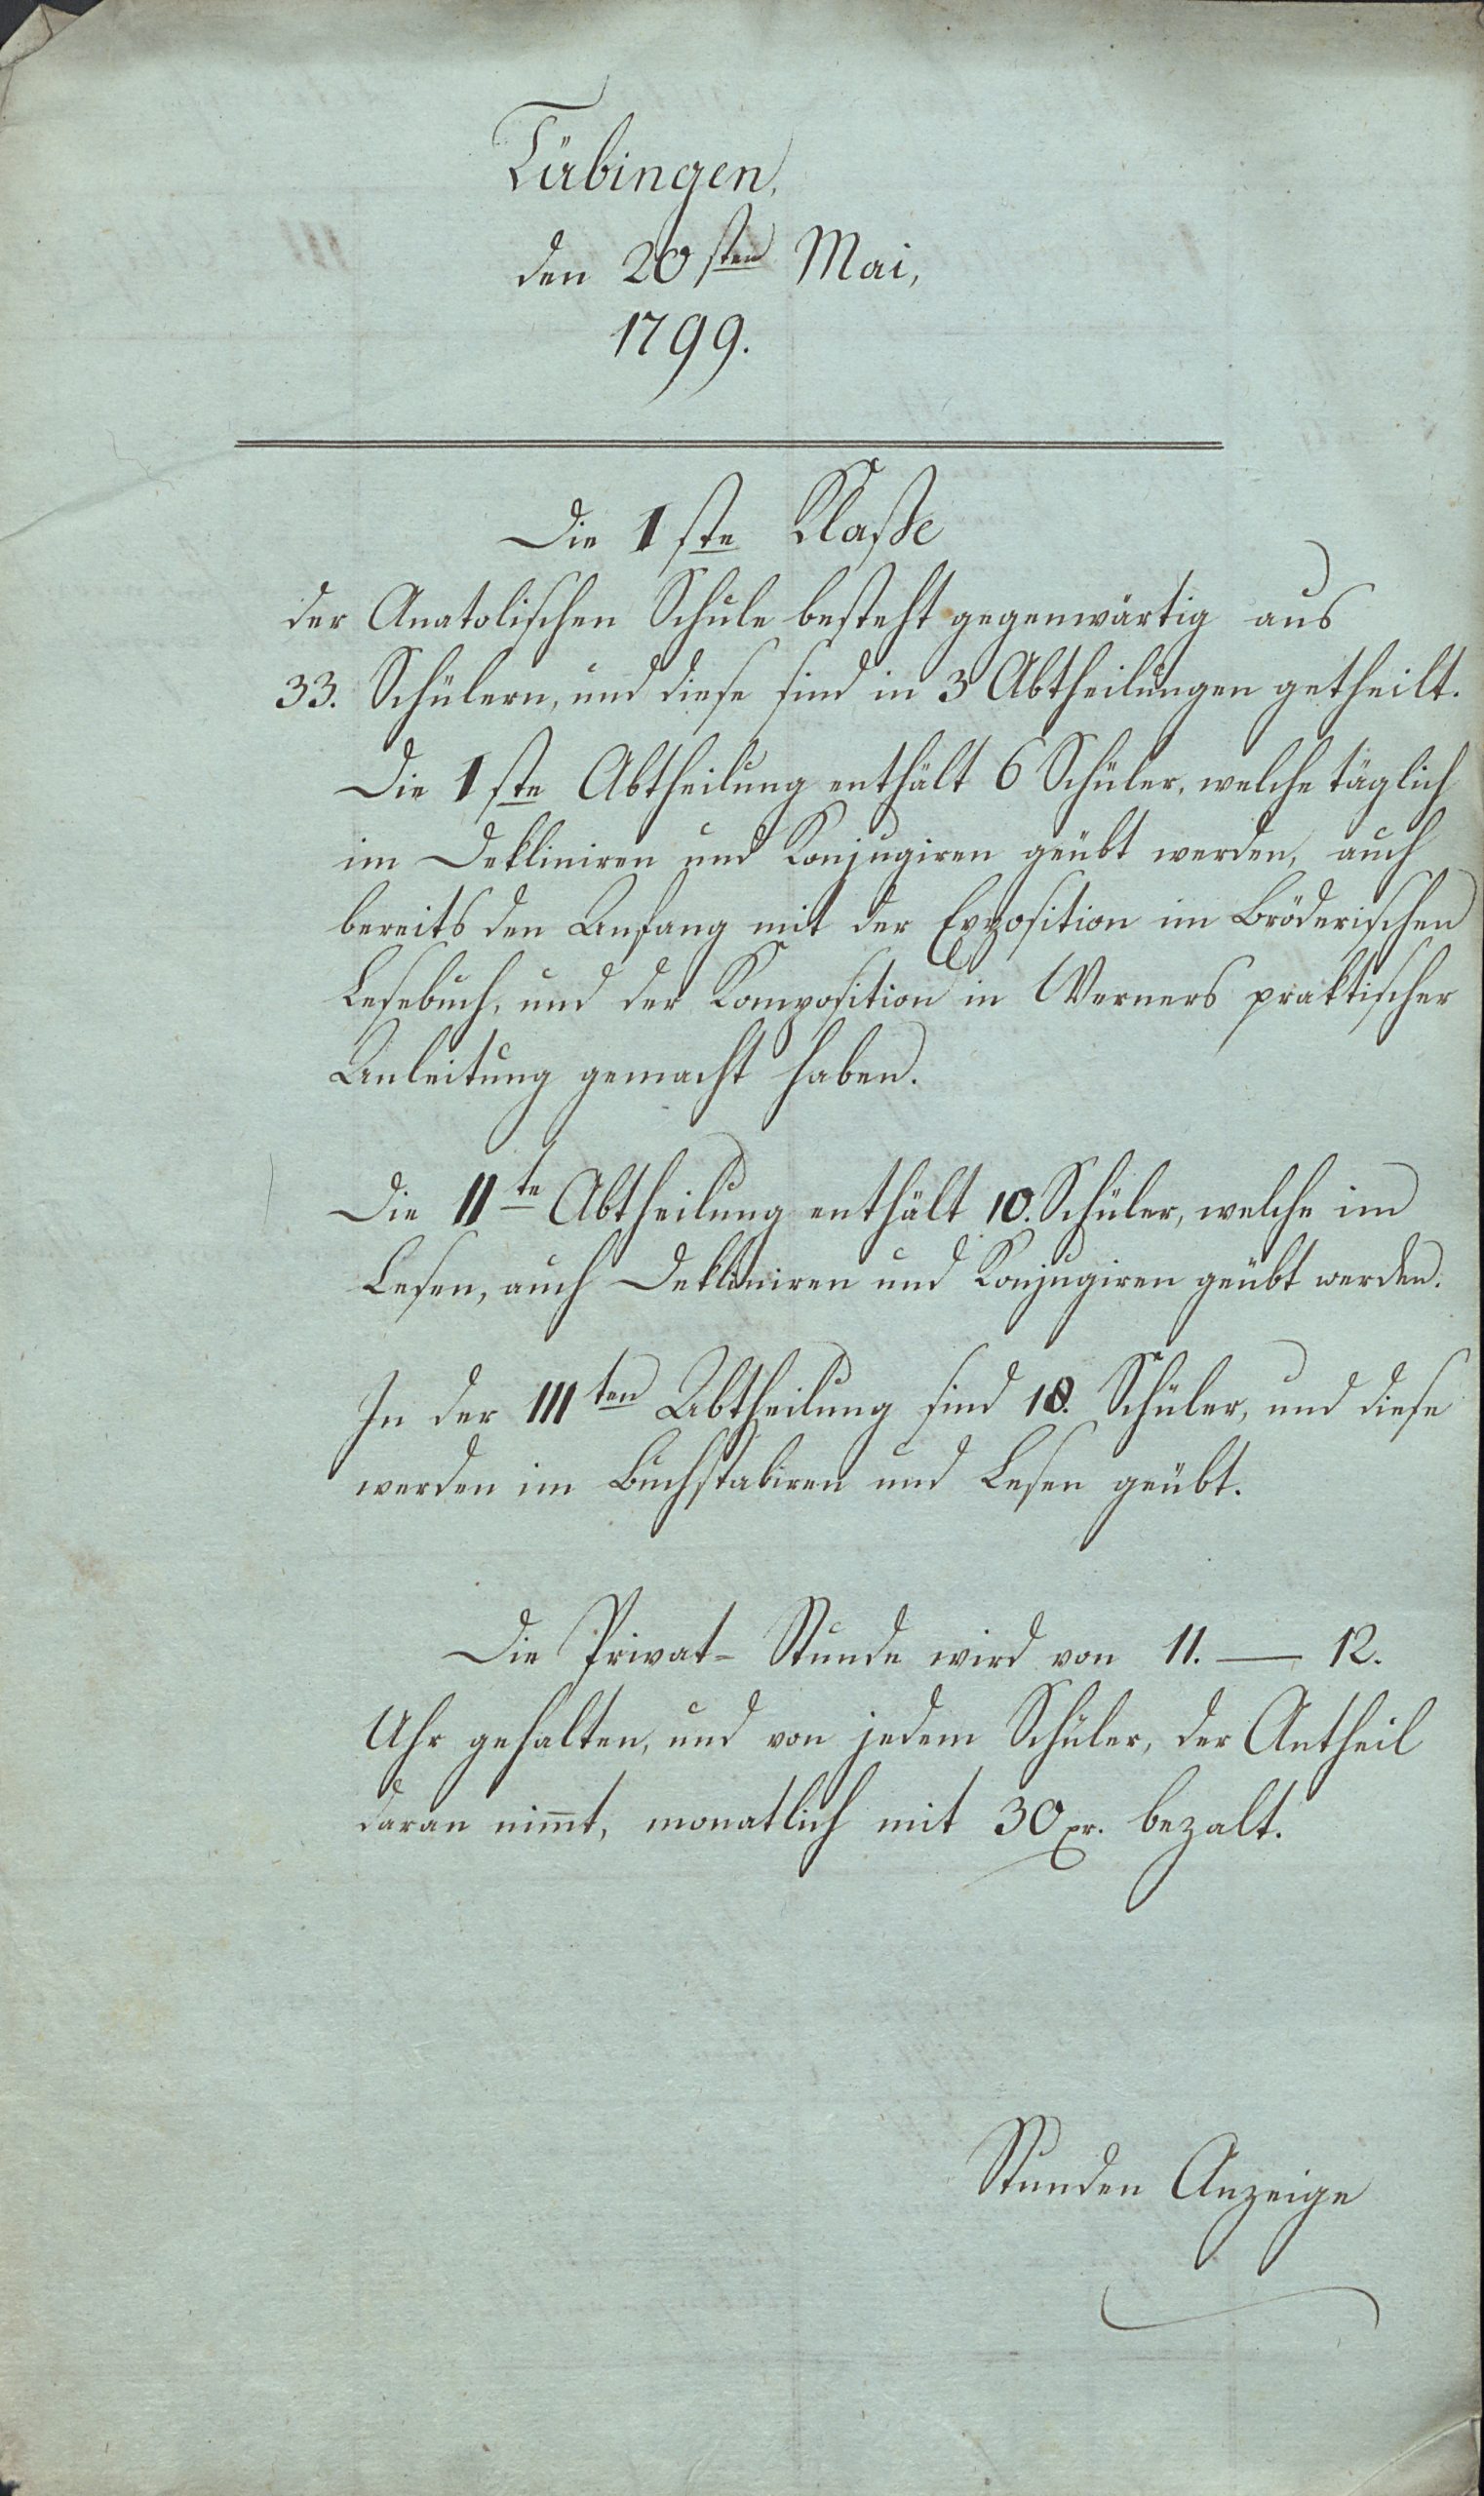 Tübingen,
den 20sten Mai,
1799.
Die 1ste Klaße
der Anatolischen Schule besteht gegenwärtig aus
33. Schülern, und diese sind in 3 Abtheilungen getheilt.
Die 1ste Abtheilung enthält 6 Schüler, welche täglich
im Dekliniren und Konjugiren geübt werden, auch
bereits den Anfang mit der Exposition im Bröderischen
Lesebuch, und der Komposition in Werners praktischer
Anleitung gemacht haben.
Die IIte Abtheilung enthält 10. Schüler, welche im
Lesen, auch Dekliniren und Konjugiren geübt werden.
In der IIIten Abtheilung sind 18. Schüler, und diese
werden im Buchstabiren und Lesen geübt.
Die Privat-Stunde wird von 11. — 12.
Uhr gehalten, und von jedem Schüler, der Antheil
daran nim̅t, monatlich mit 30 xr. bezalt.
Stunden Anzeige